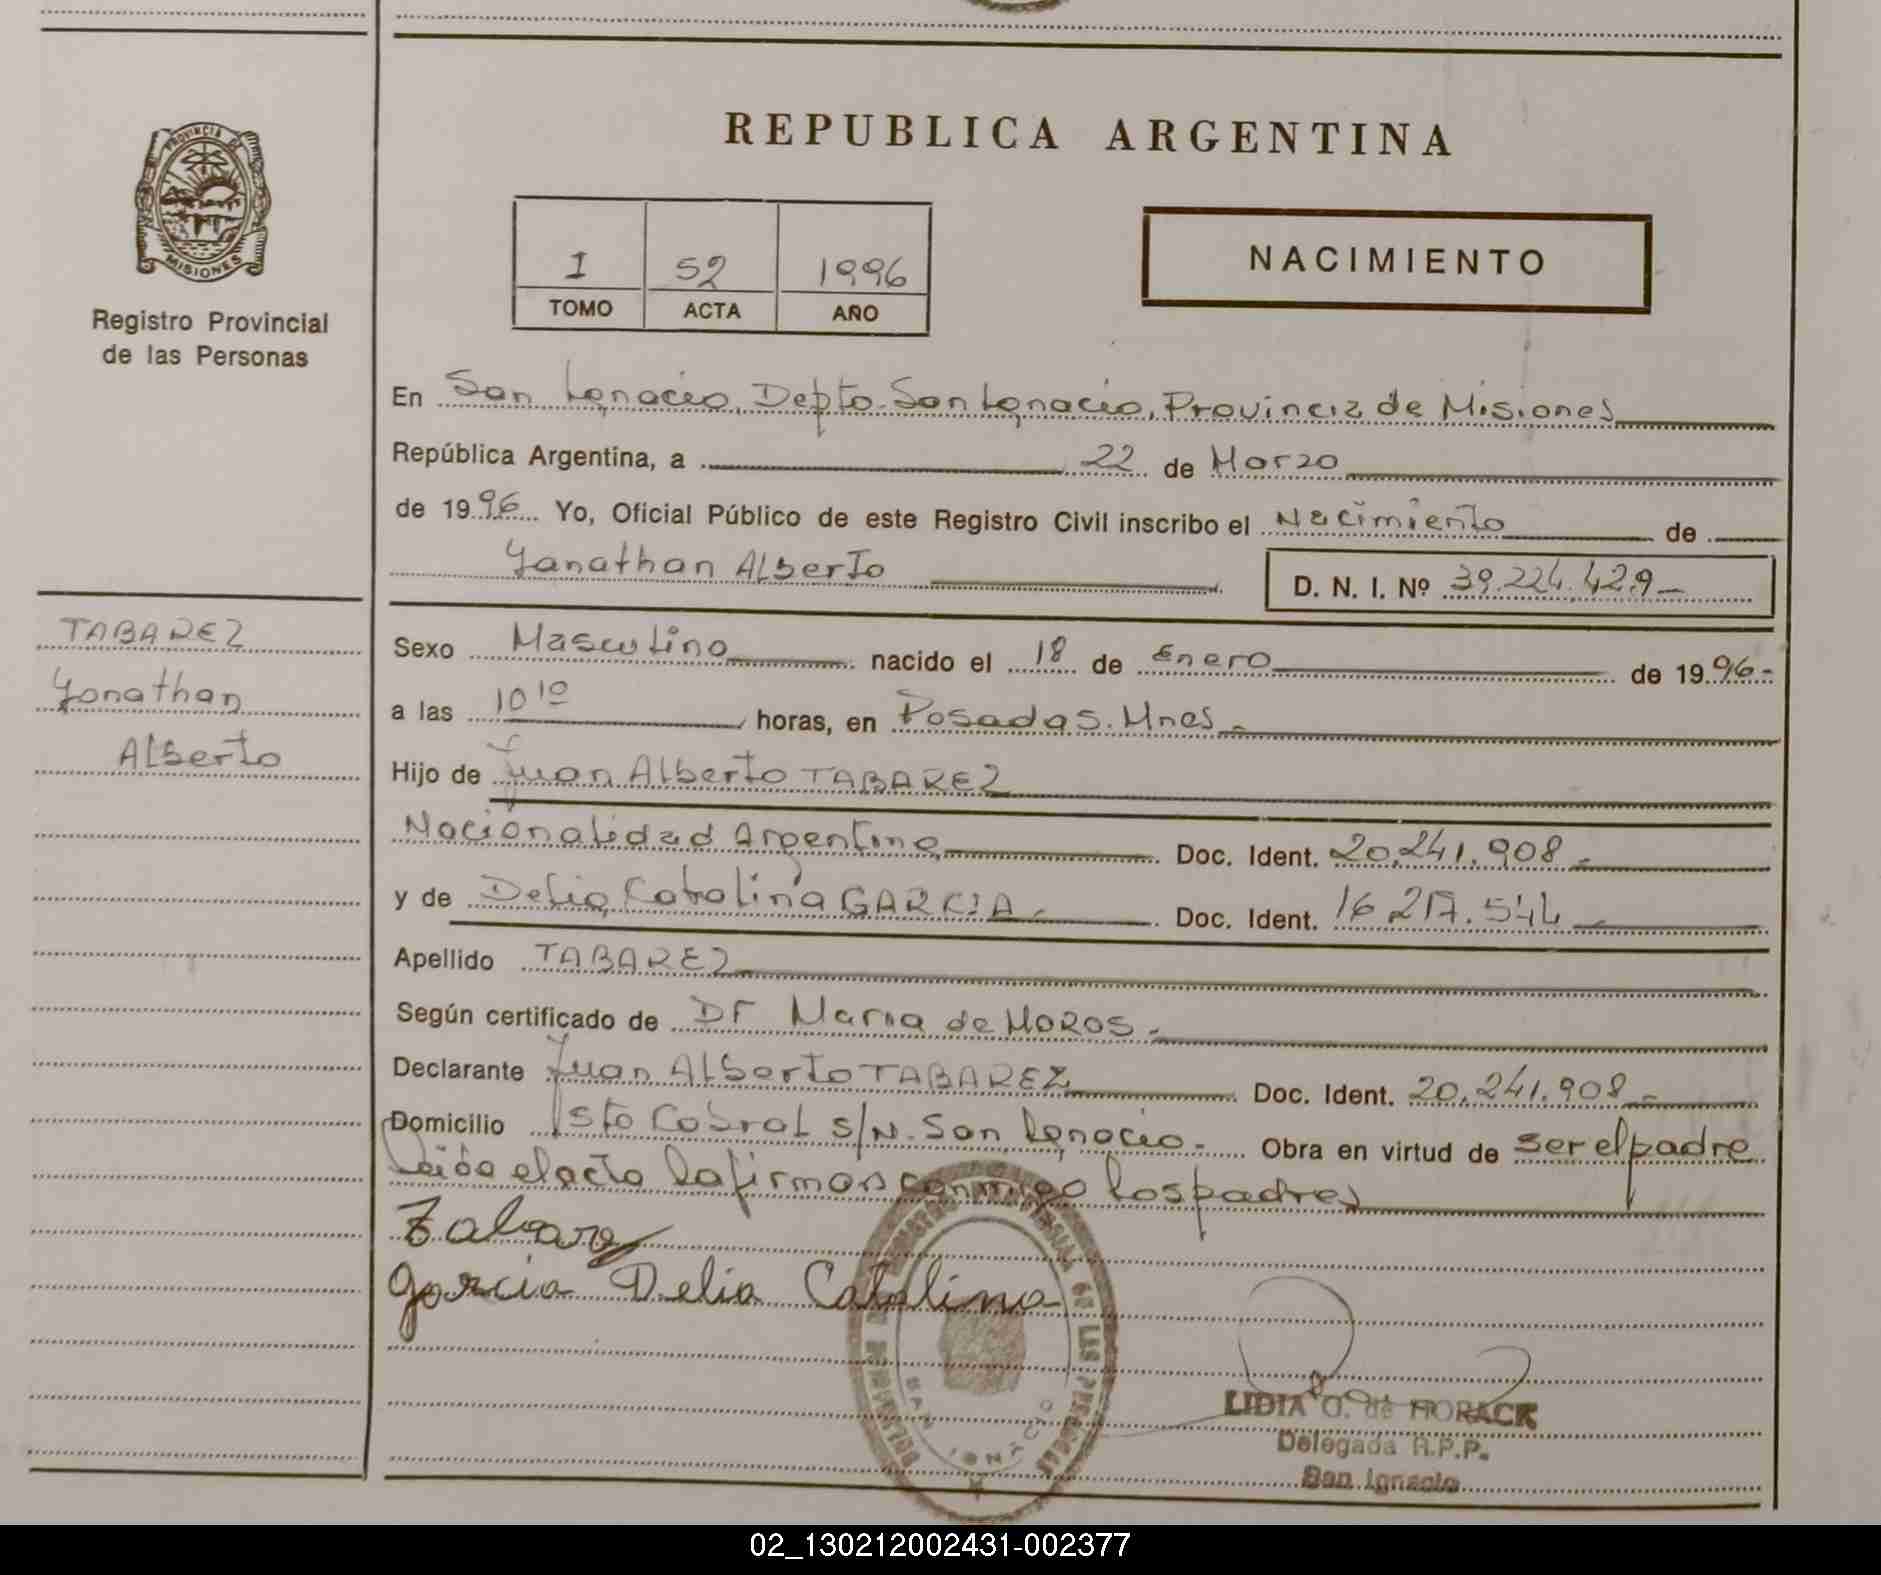 REPUBLICA ARGENTINA
PROVINCIA DE
MISIONES
Registro Provincial
de las Personas
I 52 1996
TOMO ACTA AÑO
NACIMIENTO
En San Ignacio, Depto. San Ignacio, Provincia de Misiones
República Argentina, a 22 de Marzo
de 1996 Yo, Oficial Público de este Registro Civil inscribo el Nacimiento de
Yonathan Alberto D. N. I. Nº 39.224.429
TABAREZ
Yonathan
Alberto
Sexo Masculino nacido el 18 de Enero de 1996-
a las 10 10 horas, en Posadas. Mnes.
Hijo de Juan Alberto TABAREZ
Nacionalidad Argentina Doc. Ident. 20.241.908
y de Delia Catalina GARCIA Doc. Ident. 16.217.544
Apellido TABAREZ
Según certificado de Dr Maria de MOROS
Declarante Juan Alberto TABAREZ Doc. Ident. 20.241.908
Domicilio Sto Cabral s/N. San Ignacio. Obra en virtud de ser el padre
Leida el acta la firman conmigo los padres
Tabarez
Garcia Delia Catalina
SAN IGNACIO
LIDIA O. de HORACK
Delegada R.P.P.
San Ignacio
02_130212002431-002377